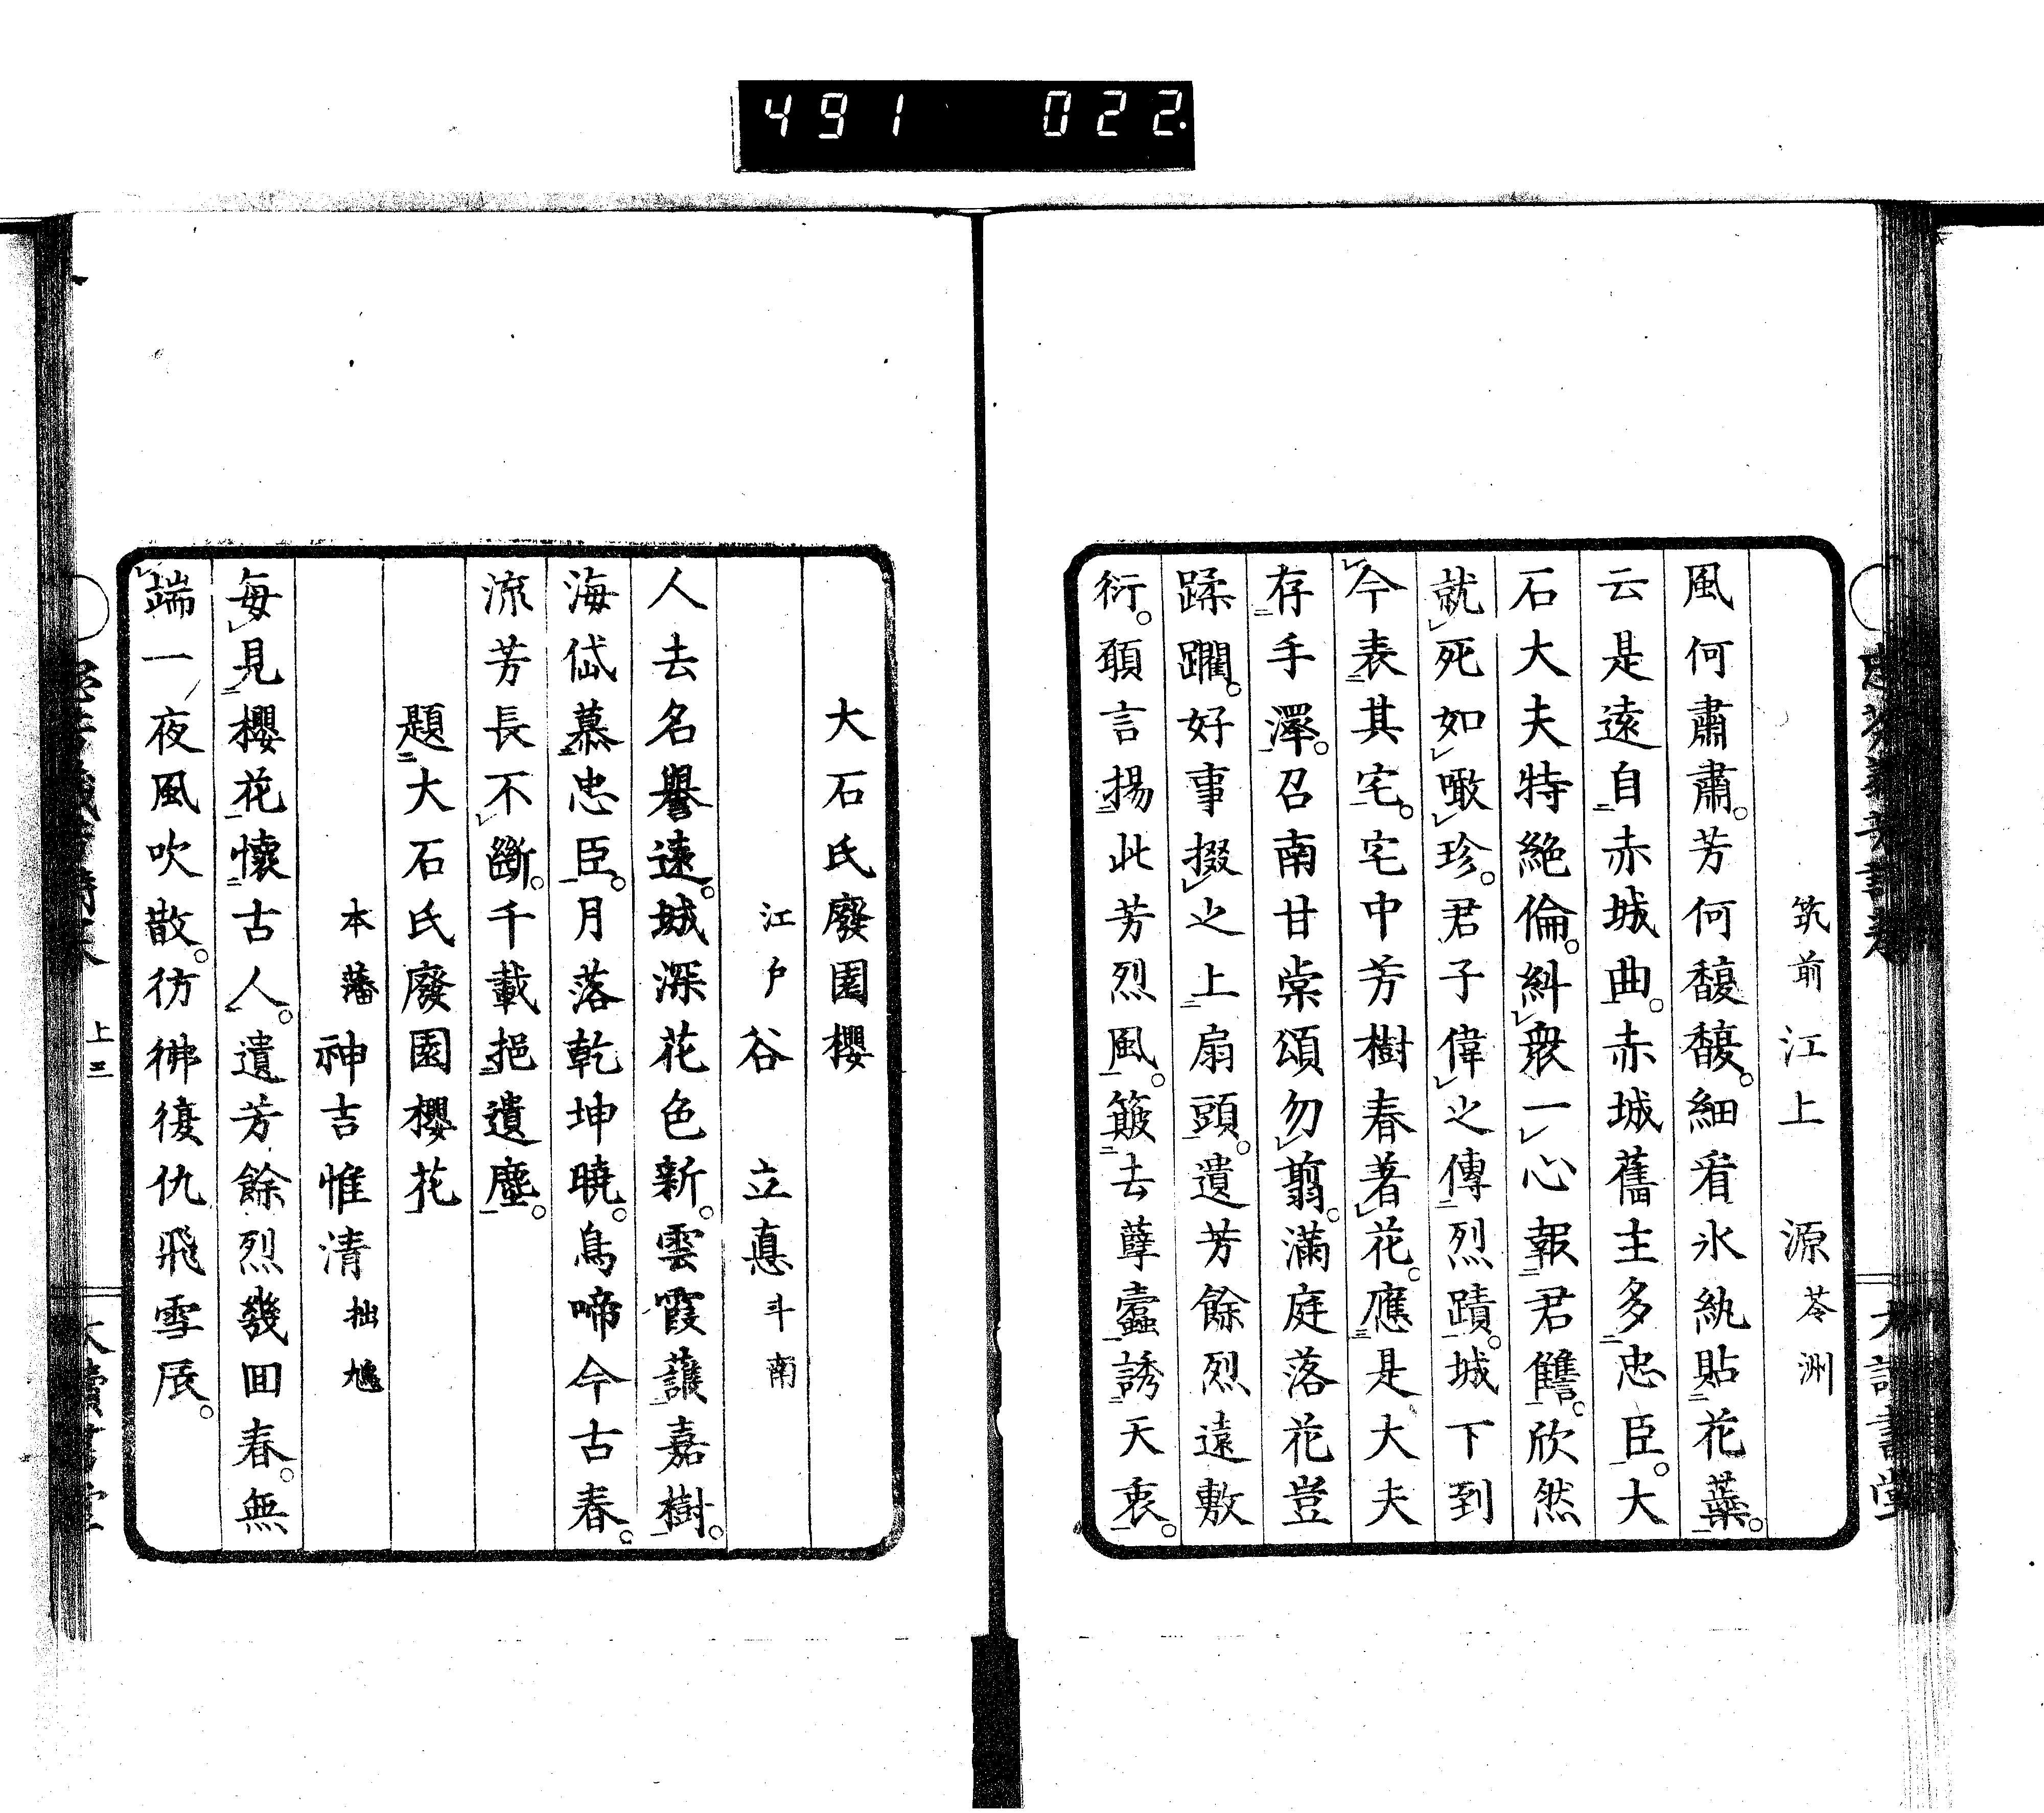 491 022
筑前 江上 源 苓洲
風何肅肅。芳何馥馥。細看氷紈貼花蘂。
云是遠自赤城曲。赤城舊主多忠臣。大
石大夫特絶倫。糾衆一心報君讎。欣然
就死如噉珍。君子偉之傳烈蹟。城下到
今表其宅。宅中芳樹春著花。應是大夫
存手澤。召南甘棠頌勿翦。滿庭落花豈
蹂躙。好事掇之上扇頭。遺芳餘烈遠敷
衍。願言揚此芳烈風。簸去孽蠹誘天衷。
大石氏廢園櫻
江戶 谷 立悳 斗南
人去名譽遠。城深花色新。雲霞護嘉樹。
海岱慕忠臣。月落乾坤曉。鳥啼今古春。
流芳長不斷。千載挹遺塵。
題大石氏廢園櫻花
本藩 神吉惟清 拙鳩
毎見櫻花懷古人。遺芳餘烈幾回春。無
端一夜風吹散。彷彿復仇飛雪辰。
上三